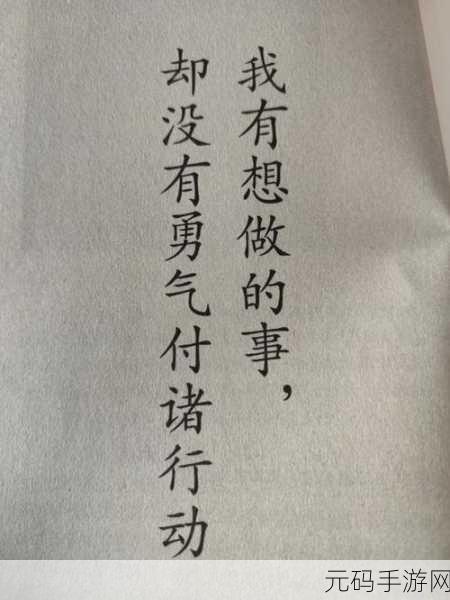 我有想做的事，
却没有勇气付诸行动
元码手游网